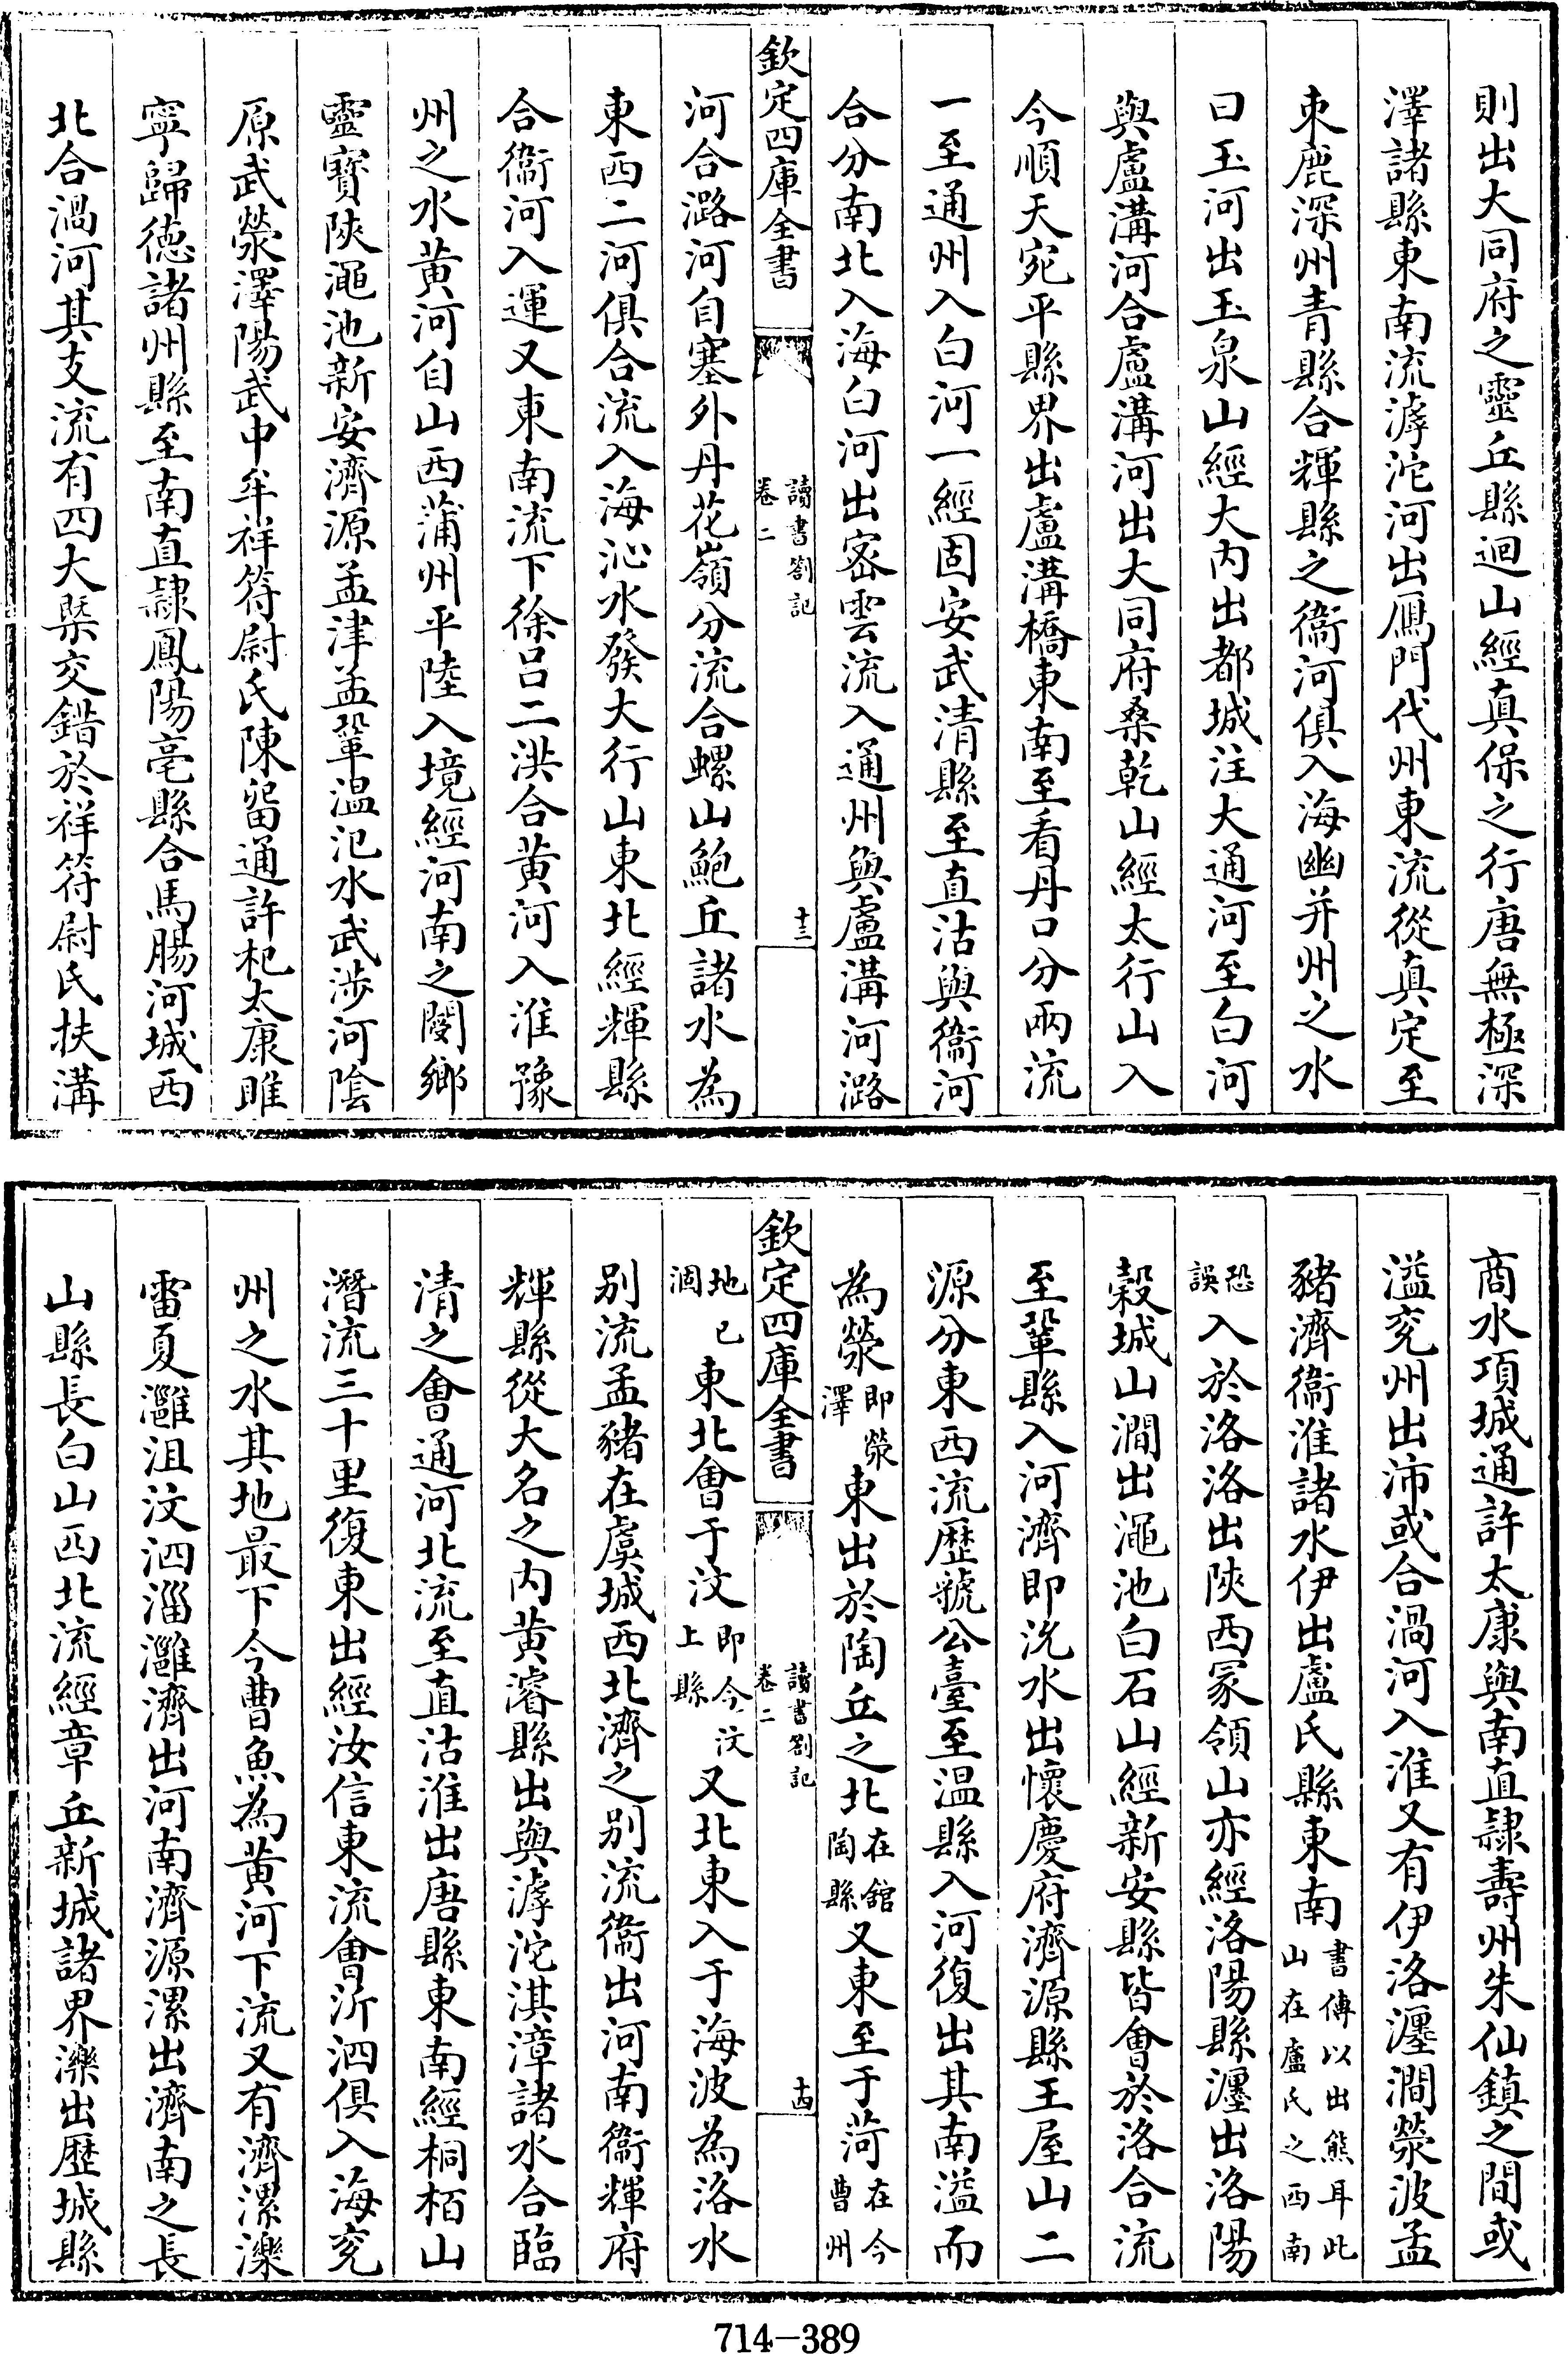 則出大同府之靈丘縣迴山經真保之行唐無極深
澤諸縣東南流滹沱河出鴈門代州東流從真定至
束鹿深州青縣合輝縣之衞河俱入海幽并州之水
曰玉河出玉泉山經大内出都城注大通河至白河
與盧溝河合盧溝河出大同府桑乾山經太行山入
今順天宛平縣界出盧溝橋東南至看丹口分兩流
一至通州入白河一經固安武清縣至直沽與衞河
合分南北入海白河出密雲流入通州與盧溝河潞
欽定四庫全書
讀書劄記
卷二
十三
河合潞河自塞外丹花嶺分流合螺山鮑丘諸水為
東西二河俱合流入海沁水發大行山東北經輝縣
合衞河入運又東南流下徐吕二洪合黄河入淮豫
州之水黄河自山西蒲州平陸入境經河南之閿鄉
靈寳陜澠池新安濟源孟津孟鞏温汜水武渉河隂
原武滎澤陽武中牟祥符尉氏陳留通許杞太康睢
寧歸徳諸州縣至南直隸鳳陽亳縣合馬腸河城西
北合渦河其支流有四大槩交錯於祥符尉氏扶溝
商水項城通許太康與南直隸壽州朱仙鎮之間或
溢兖州出沛或合渦河入淮又有伊洛瀍澗滎波孟
豬濟衞淮諸水伊出盧氏縣東南書傳以出熊耳此
山在盧氏之西南
恐
誤入於洛洛出陜西冢領山亦經洛陽縣瀍出洛陽
榖城山澗出澠池白石山經新安縣皆會於洛合流
至鞏縣入河濟即沇水出懷慶府濟源縣王屋山二
源分東西流歴虢公臺至温縣入河復出其南溢而
為滎即滎
澤東出於陶丘之北在舘
陶縣又東至于菏在今
曹州
欽定四庫全書
讀書劄記
卷二
十四
地已
涸東北會于汶即今汶
上縣又北東入于海波為洛水
别流孟豬在虞城西北濟之别流衞出河南衞輝府
輝縣從大名之内黄濬縣出與滹沱淇漳諸水合臨
清之會通河北流至直沽淮出唐縣東南經桐栢山
潛流三十里復東出經汝信東流會沂泗俱入海兖
州之水其地最下今曹魚為黄河下流又有濟漯濼
雷夏灉沮汶泗淄灉濟出河南濟源漯出濟南之長
山縣長白山西北流經章丘新城諸界濼出歴城縣
714-389